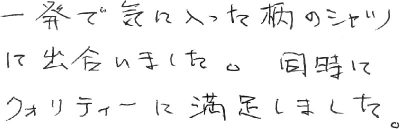 一発で気に入った柄のシャツ
に出合いました。同時に
クォリティーに満足しました。